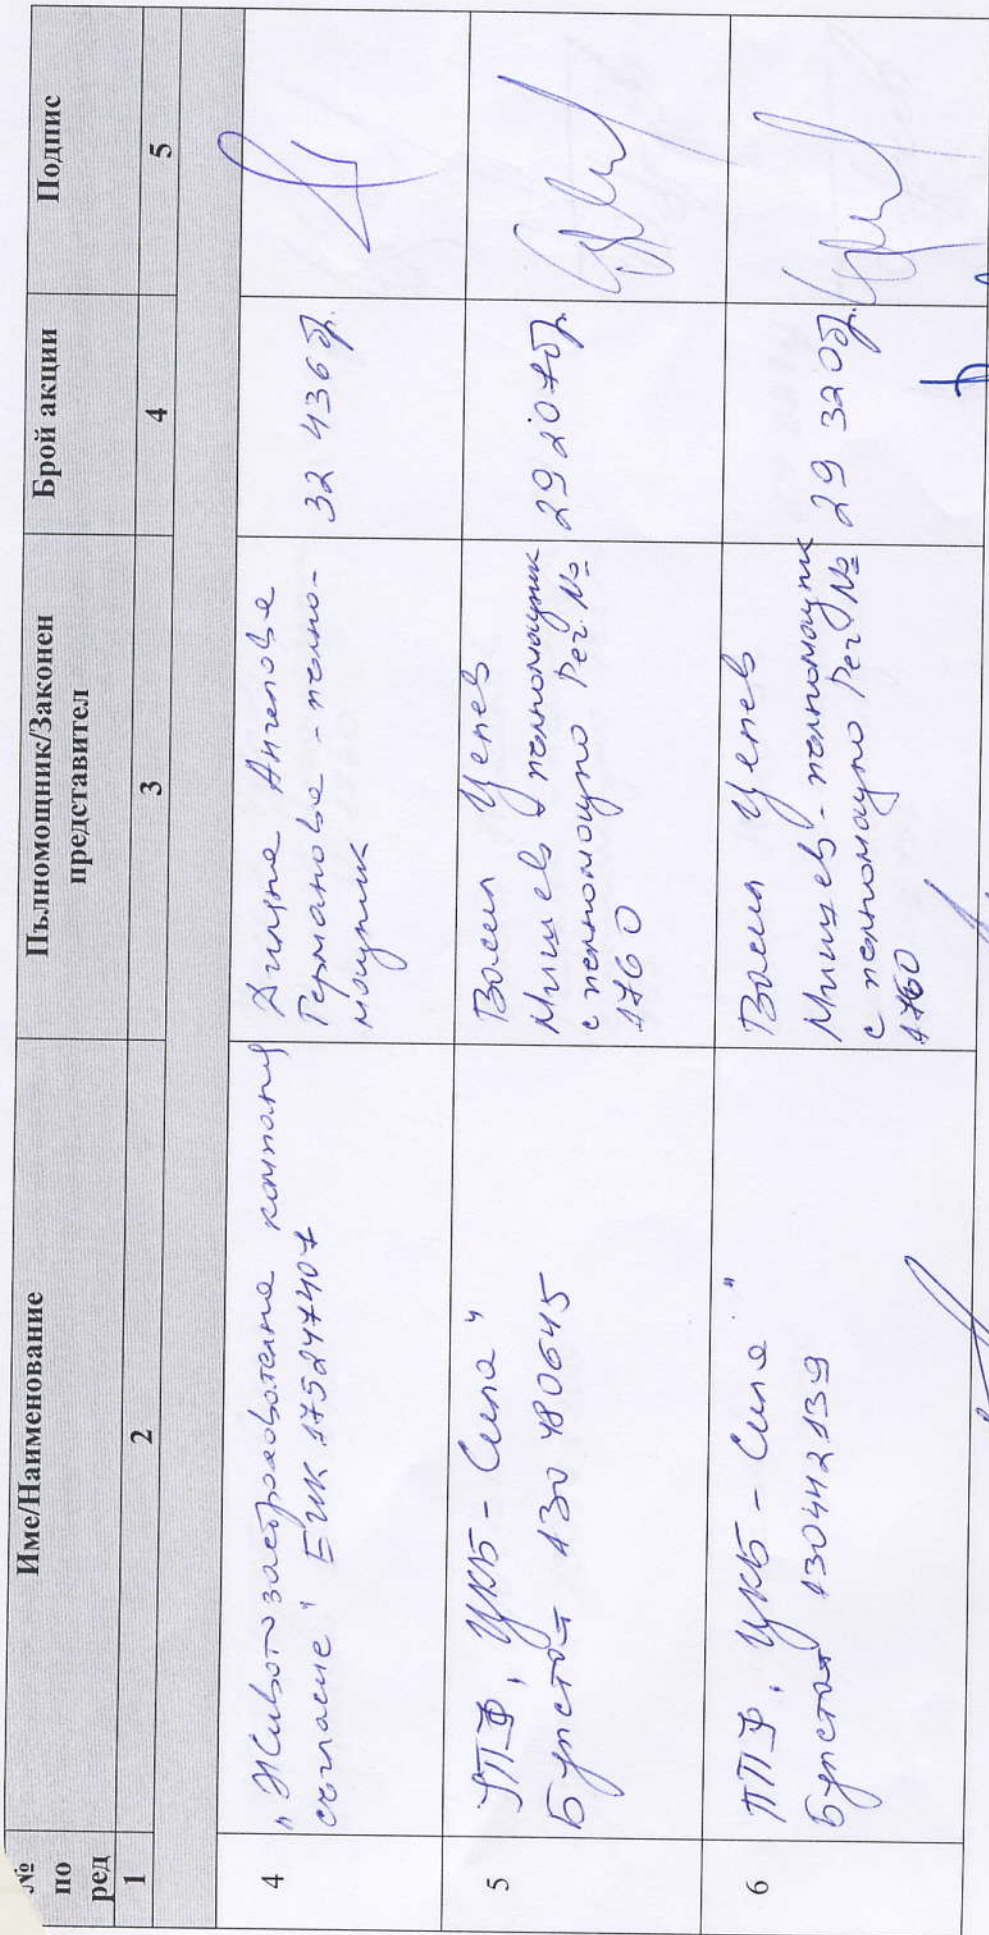 № по ред
Име/Наименование
Пълномощник/Законен представител
Брой акции
Подпис
1
2
3
4
5
4
"Животозастрахователна компания
съгласие" ЕИК 175247407
Диляна Ангелова
Германова - пълно-
мощник
32 436 бр.
5
УПФ "ЦКБ - Сила"
Булстат 130480645
Васил Ценев
Мишев пълномощник
с пълномощно Рег. №
4760
29 207 бр.
6
ППФ "ЦКБ - Сила"
Булстат 130442139
Васил Ценев
Мишев - пълномощник
с пълномощно Рег №
4760
29 320 бр.